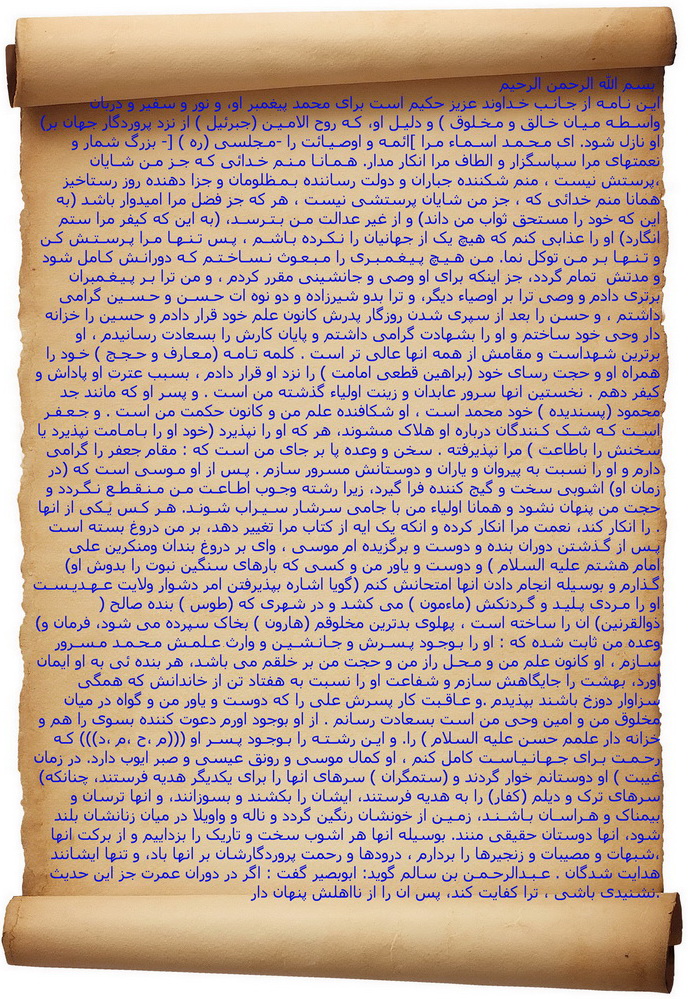 بسم الله الرحمن الرحیم
این نامه از جانب خداوند عزیز حکیم است برای محمد پیغمبر او، و نور و سفیر و دربان
واسطه میان خالق و مخلوق ) و دلیل او، که روح الامین (جبرئیل ) از نزد پروردگار جهان بر)
او نازل شود. ای محمد اسماء مرا ]ائمه و اوصیائت را -مجلسی (ره ) [- بزرگ شمار و
نعمتهای مرا سپاسگزار و الطاف مرا انکار مدار. همانا منم خدائی که جز من شایان
،پرستش نیست ، منم شکننده جباران و دولت رساننده بمظلومان و جزا دهنده روز رستاخیز
همانا منم خدائی که ، جز من شایان پرستشی نیست ، هر که جز فضل مرا امیدوار باشد (به
این که خود را مستحق ثواب من داند) و از غیر عدالت من بترسد، (به این که کیفر مرا ستم
انگارد) او را عذابی کنم که هیچ یک از جهانیان را نکرده باشم ، پس تنها مرا پرستش کن
و تنها بر من توکل نما. من هیچ پیغمبری را مبعوث نساختم که دورانش کامل شود
و مدتش تمام گردد، جز اینکه برای او وصی و جانشینی مقرر کردم ، و من ترا بر پیغمبران
برتری دادم و وصی ترا بر اوصیاء دیگر، و ترا بدو شیرزاده و دو نوه ات حسن و حسین گرامی
داشتم ، و حسن را بعد از سپری شدن روزگار پدرش کانون علم خود قرار دادم و حسین را خزانه
دار وحی خود ساختم و او را بشهادت گرامی داشتم و پایان کارش را بسعادت رسانیدم ، او
برترین شهداست و مقامش از همه انها عالی تر است . کلمه تامه (معارف و حجج ) خود را
همراه او و حجت رسای خود (براهین قطعی امامت ) را نزد او قرار دادم ، بسبب عترت او پاداش و
کیفر دهم . نخستین انها سرور عابدان و زینت اولیاء گذشته من است . و پسر او که مانند جد
محمود (پسندیده ) خود محمد است ، او شکافنده علم من و کانون حکمت من است . و جعفر
است که شک کنندگان درباره او هلاک میشوند، هر که او را نپذیرد (خود او را بامامت نپذیرد یا
سخنش را باطاعت ) مرا نپذیرفته . سخن و وعده پا بر جای من است که : مقام جعفر را گرامی
دارم و او را نسبت به پیروان و یاران و دوستانش مسرور سازم . پس از او موسی است که (در
زمان او) اشوبی سخت و گیج کننده فرا گیرد، زیرا رشته وجوب اطاعت من منقطع نگردد و
حجت من پنهان نشود و همانا اولیاء من با جامی سرشار سیراب شوند. هر کس یکی از انها
را انکار کند، نعمت مرا انکار کرده و انکه یک ایه از کتاب مرا تغییر دهد، بر من دروغ بسته است
پس از گذشتن دوران بنده و دوست و برگزیده ام موسی ، وای بر دروغ بندان ومنکرین علی
امام هشتم علیه السلام ) و دوست و یاور من و کسی که بارهای سنگین نبوت را بدوش او)
گذارم و بوسیله انجام دادن انها امتحانش کنم (گویا اشاره بپذیرفتن امر دشوار ولایت عهدیست
او را مردی پلید و گردنکش (ماءمون ) می کشد و در شهری که (طوس ) بنده صالح (
ذوالقرنین) ان را ساخته است ، پهلوی بدترین مخلوقم (هارون ) بخاک سپرده می شود، فرمان و)
وعده من ثابت شده که : او را بوجود پسرش و جانشین و وارث علمش محمد مسرور
سازم ، او کانون علم من و محل راز من و حجت من بر خلقم می باشد، هر بنده ئی به او ایمان
اورد، بهشت را جایگاهش سازم و شفاعت او را نسبت به هفتاد تن از خاندانش که همگی
سزاوار دوزخ باشند بپذیرم .و عاقبت کار پسرش علی را که دوست و یاور من و گواه در میان
مخلوق من و امین وحی من است بسعادت رسانم . از او بوجود اورم دعوت کننده بسوی را هم و
خزانه دار علمم حسن علیه السلام ) را. و این رشته را بوجود پسر او (((م ،ح ،م ،د))) که
رحمت برای جهانیاست کامل کنم ، او کمال موسی و رونق عیسی و صبر ایوب دارد. در زمان
غیبت ) او دوستانم خوار گردند و (ستمگران ) سرهای انها را برای یکدیگر هدیه فرستند، چنانکه)
سرهای ترک و دیلم (کفار) را به هدیه فرستند، ایشان را بکشند و بسوزانند، و انها ترسان و
بیمناک و هراسان باشند، زمین از خونشان رنگین گردد و ناله و واویلا در میان زنانشان بلند
شود، انها دوستان حقیقی منند. بوسیله انها هر اشوب سخت و تاریک را بزدایم و از برکت انها
،شبهات و مصیبات و زنجیرها را بردارم ، درودها و رحمت پروردگارشان بر انها باد، و تنها ایشانند
هدایت شدگان . عبدالرحمن بن سالم گوید: ابوبصیر گفت : اگر در دوران عمرت جز این حدیث
.نشنیدی باشی ، ترا کفایت کند، پس ان را از نااهلش پنهان دار